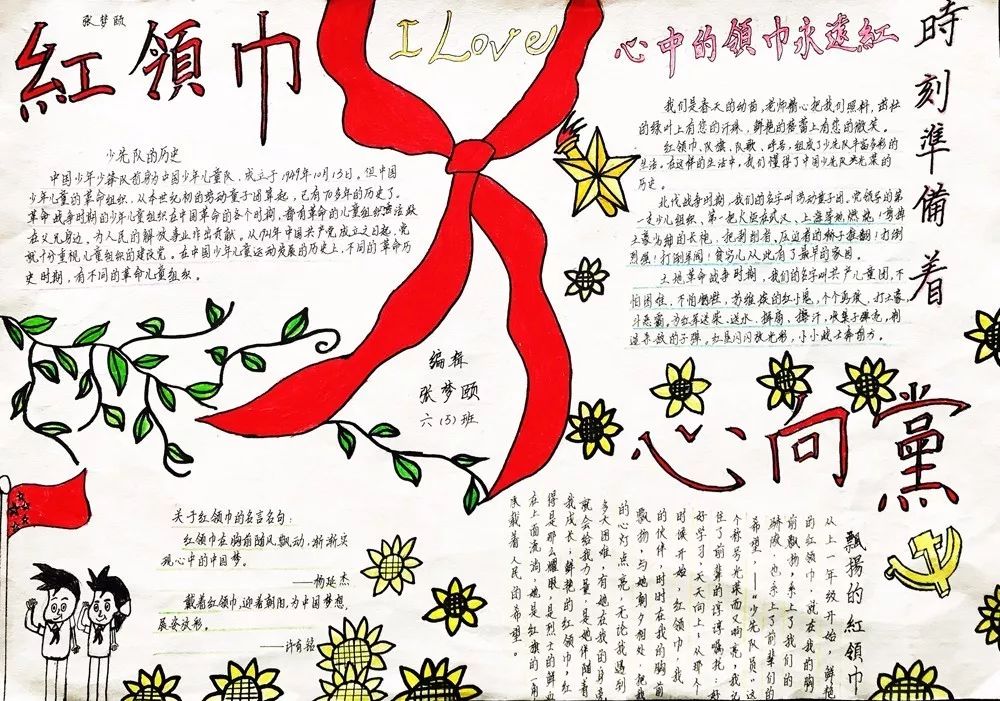 张梦颐
紅領巾
I Love
心中的領巾永遠紅
時刻準備着
少先队的历史
中国少年少先队前身为中国少年儿童队，成立于1949年10月13日。但中国
少年儿童的革命组织，从本世纪初的劳动童子团算起，已有70多年的历史了。
革命战争时期的少年儿童组织在中国革命的各个时期，都有革命的儿童组织
在父兄身边，为人民的解放事业作出贡献。从1921年中国共产党成立之日起，党
就十分重视儿童组织的建设党。在中国少年儿童运动发展的历史上，不同的革命历
史时期，有不同的革命儿童组织。
我们是春天的幼苗，老师精心把我们照料，茁壮
的绿叶上有您的汗珠，鲜艳的蓓蕾上有您的微笑。
红领巾、队旗、队歌、呼号，组成了少先队丰富多彩的
生活。在这样的生活中，我们懂得了中国少先队光荣的
历史。
北伐战争时期，我们的名字叫劳动童子团。党领导的第
一支少儿组织，第一把火炬在武汉、上海等地燃烧！剪掉
土豪乡绅的长袍，把剥削者、压迫者的狮子推翻！打倒
列强！打倒军阀！贫穷儿从此有了最早的家园。
土地革命战争时期，我们的名字叫共产儿童团，不
怕困难，不怕牺牲，苏维埃的红小鬼，个个勇敢，打土豪，
斗恶霸。为红军送菜、送水、
送杀敌的子弹。红星闪闪放光彩，小小战士奔前方。
编辑
张梦颐
六（5）班
心向黨
关于红领巾的名言名句：
红领巾在胸前随风飘动，渐渐实
现心中的中国梦。
——杨延杰
戴着红领巾，迎着朝阳，为中国梦想，
展姿谈彩。
飄揚的紅領巾
从上一年级开始，鲜艳
的红领巾，就在我的胸
前飘扬，系上了我们的
骄傲，也系上了前辈们的
希望——“少先队员”这
个称号光荣而又响亮，我记
住了前辈的谆谆嘱托：好
好学习，天天向上；从那个
时候开始，红领巾，我
的伙伴，时时在我的胸前
飘扬，与她朝夕相处，把我
的心灯点亮，无论我遇到
多大困难，有她在我的身边
就会给我力量，是她伴随着
我成长；鲜艳的红领巾，红
得是那么耀眼，是烈士的鲜血
在上面流淌，她是红旗的一角
承载着人民的希望。